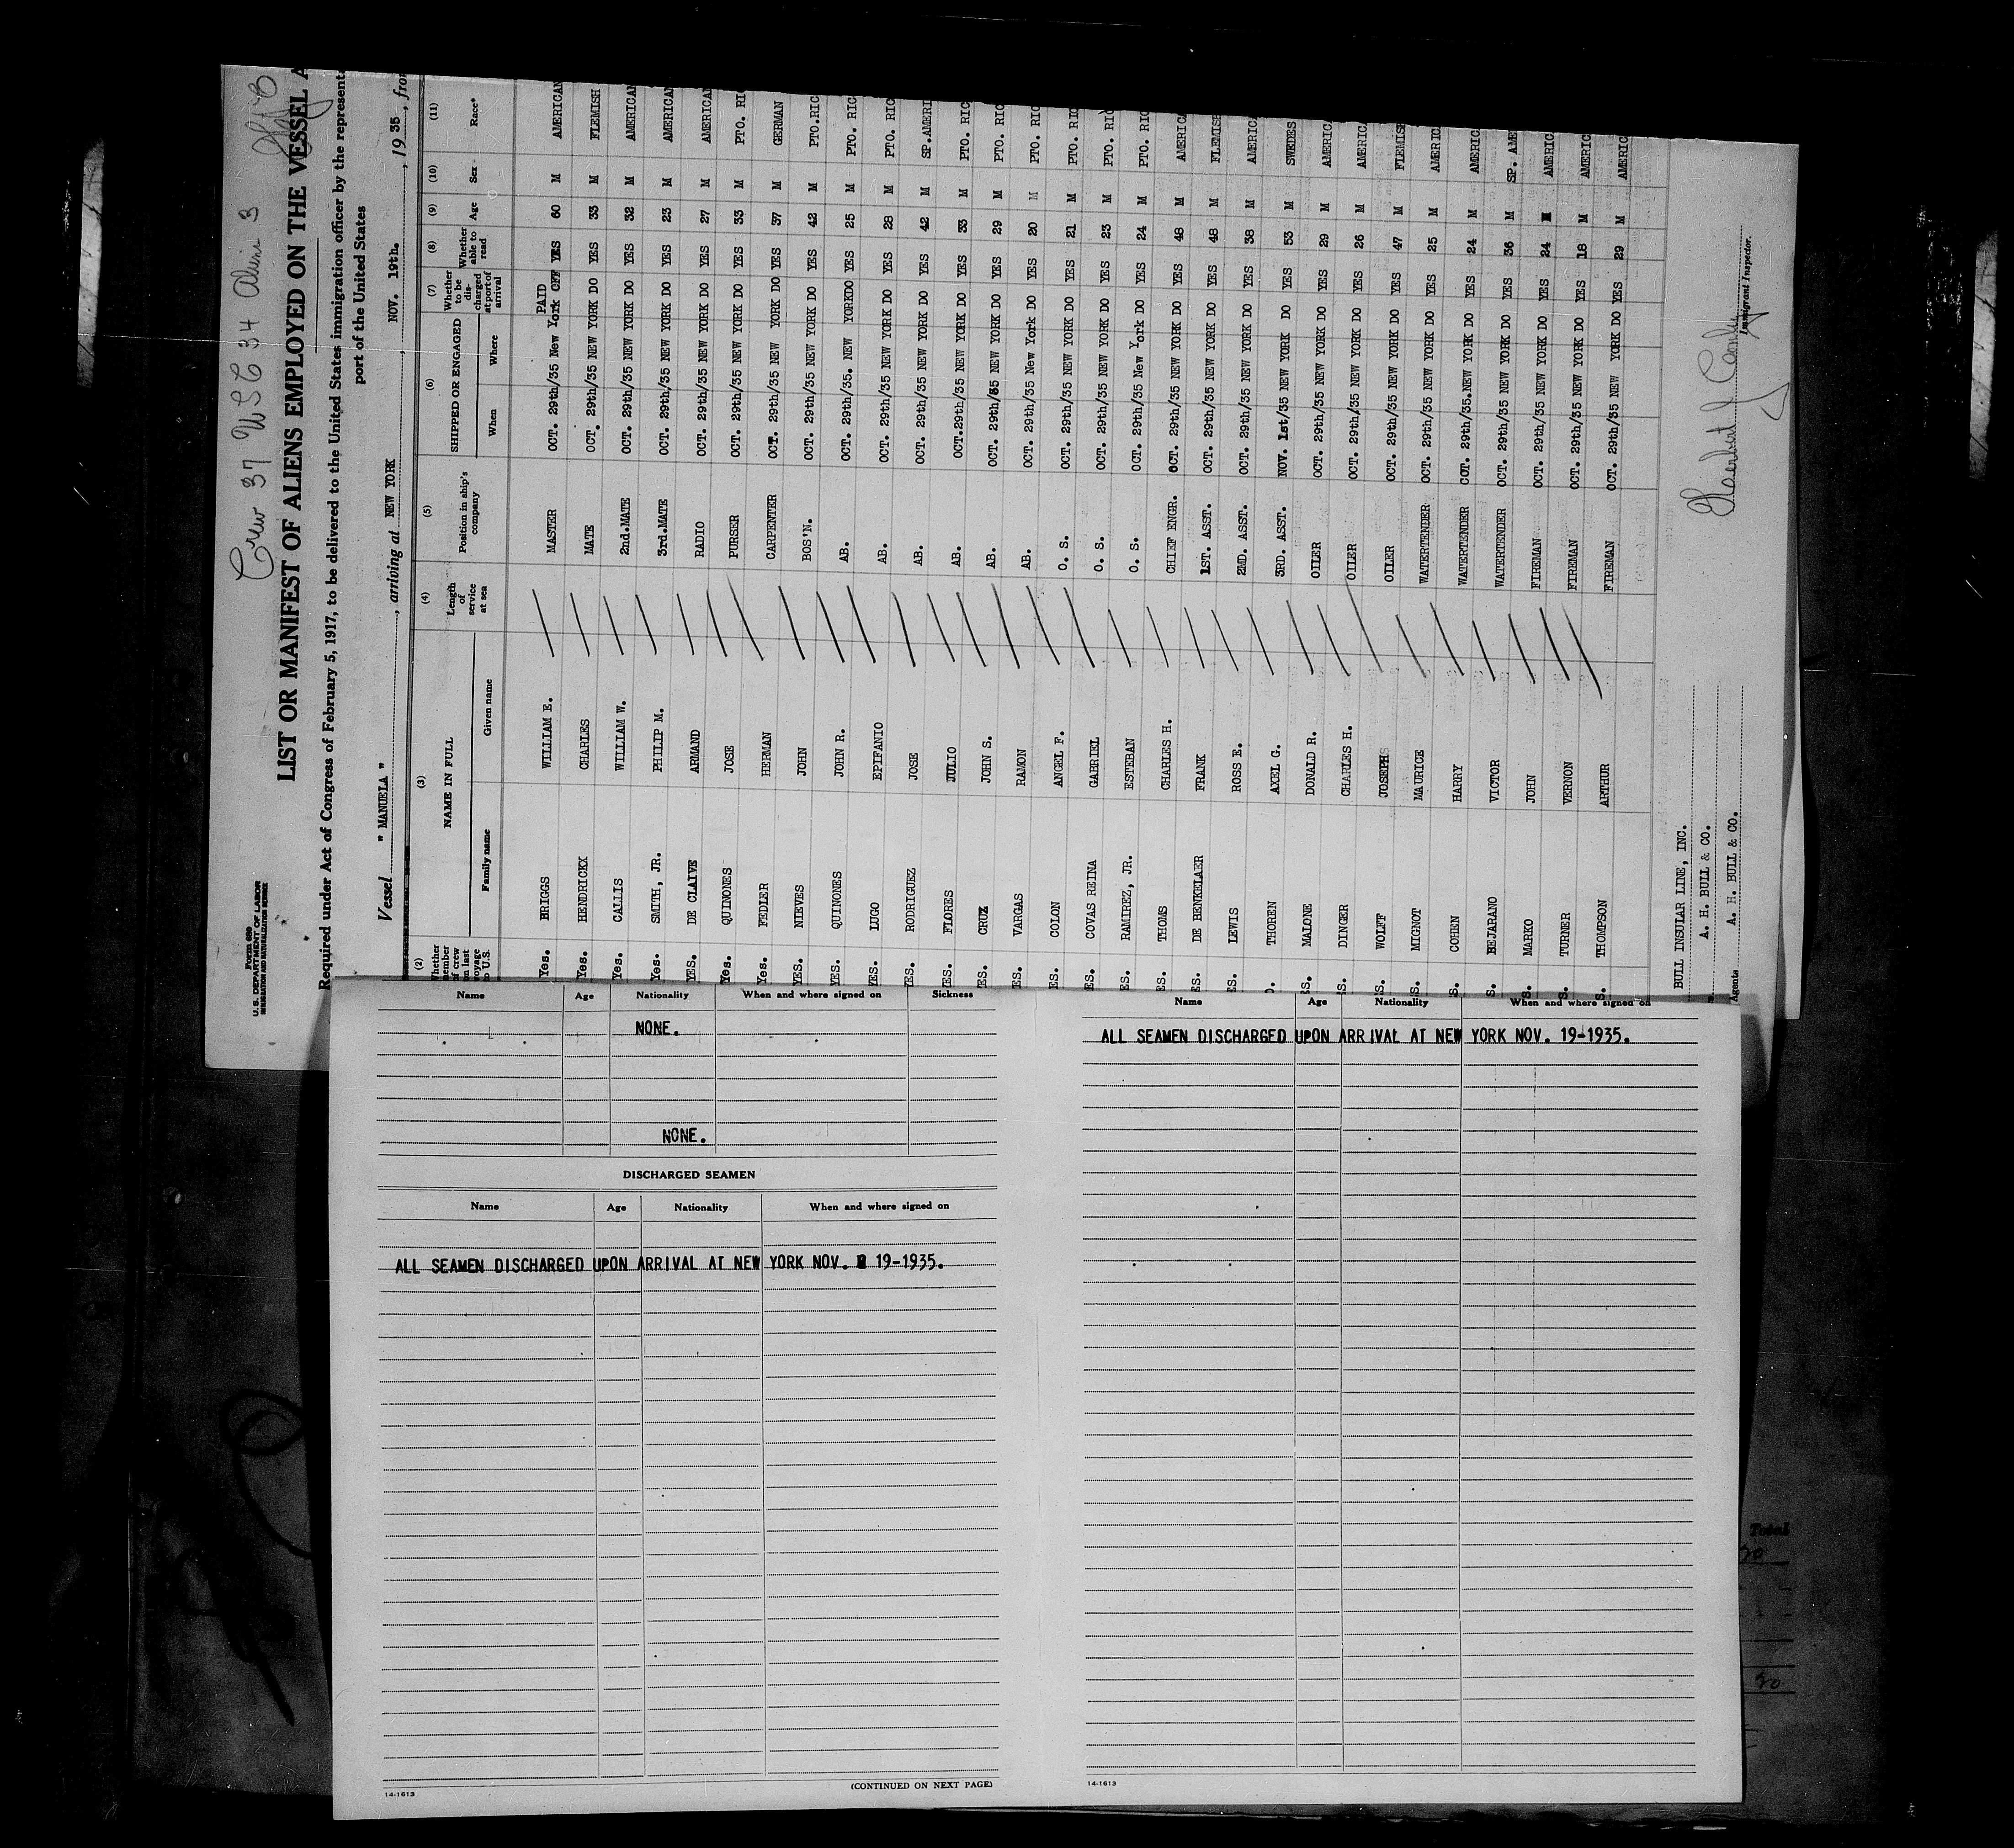 Crew 37 USC 34 Aliens 3
Form 680
U. S. DEPARTMENT OF LABOR
IMMIGRATION AND NATURALIZATION SERVICE
LIST OR MANIFEST OF ALIENS EMPLOYED ON THE VESSEL A
Required under Act of Congress of February 5, 1917, to be delivered to the United States immigration officer by the represent
port of the United States
Vessel " MANUELA " , arriving at NEW YORK , NOV. 19th. , 19 35 , from
(2) (3) (4) (5) (6) (7) (8) (9) (10) (11)
Whether member of crew on last voyage to U.S. NAME IN FULL Length of service at sea Position in ship's company SHIPPED OR ENGAGED Whether to be discharged at port of arrival Whether able to read Age Sex Race*
Family name Given name When Where
Yes. BRIGGS WILLIAM E. MASTER OCT. 29th/35 New York PAID OFF YES 60 M AMERICAN
Yes. HENDRICKX CHARLES MATE OCT. 29th/35 NEW YORK DO YES 33 M FLEMISH
Yes. CALLIS WILLIAM W. 2nd.MATE OCT. 29th/35 NEW YORK DO YES 32 M AMERICAN
Yes. SMITH, JR. PHILIP M. 3rd.MATE OCT. 29th/35 NEW YORK DO YES 23 M AMERICAN
YES. DE CLAIVE ARMAND RADIO OCT. 29th/35 NEW YORK DO YES 27 M AMERICAN
Yes. QUINONES JOSE PURSER OCT. 29th/35 NEW YORK DO YES 33 M PTO. RIC
Yes. FEDLER HERMAN CARPENTER OCT. 29th/35 NEW YORK DO YES 37 M GERMAN
YES. NIEVES JOHN BOS'N. OCT. 29th/35 NEW YORK DO YES 42 M PTO.RIC
YES. QUINONES JOHN R. AB. OCT. 29th/35. NEW YORKDO YES 25 M PTO. RIC
YES. LUGO EPIFANIO AB. OCT. 29th/35 NEW YORK DO YES 28 M PTO. RIC
ES. RODRIGUEZ JOSE AB. OCT. 29th/35 NEW YORK DO YES 42 M SP.AMERI
YES. FLORES JULIO AB. OCT.29th/35 NEW YORK DO YES 33 M PTO. RIC
YES. CRUZ JOHN S. AB. OCT. 29th/35 NEW YORK DO YES 29 M PTO. RIC
YES. VARGAS RAMON AB. OCT. 29th/35 New York DO YES 20 M PTO. RIC
ES. COLON ANGEL F. O. S. OCT. 29th/35 NEW YORK DO YES 21 M PTO. RIC
ES. COVAS REINA GABRIEL O. S. OCT. 29th/35 NEW YORK DO YES 23 M PTO. RIC
ES. RAMIREZ, JR. ESTEBAN O. S. OCT. 29th/35 New York DO YES 24 M PTO. RIC
ES. THOMS CHARLES H. CHIEF ENGR. OCT. 29th/35 NEW YORK DO YES 48 M AMERICA
ES. DE BENKELAER FRANK 1ST. ASST. OCT. 29th/35 NEW YORK DO YES 48 M FLEMISH
ES. LEWIS ROSS E. 2MD. ASST. OCT. 29th/35 NEW YORK DO YES 38 M AMERICA
O. THOREN AXEL G. 3RD. ASST. NOV. 1st/35 NEW YORK DO YES 53 M SWEDES
ES. MALONE DONALD R. OILER OCT. 29th/35 NEW YORK DO YES 29 M AMERICA
S. DINGER CHARLES H. OILER OCT. 29th/35 NEW YORK DO YES 26 M AMERIC
S. WOLFF JOSEPH OILER OCT. 29th/35 NEW YORK DO YES 47 M FLEMISH
S. MIGNOT MAURICE WATERTENDER OCT. 29th/35 NEW YORK DO YES 25 M AMERIC
S. COHEN HARRY WATERTENDER OCT. 29th/35.NEW YORK DO YES 24 M AMERIC
S. BEJARANO VICTOR WATERTENDER OCT. 29th/35 NEW YORK DO YES 36 M SP. AME
S. MARKO JOHN FIREMAN OCT. 29th/35 NEW YORK DO YES 24 M AMERIC
S. TURNER VERNON FIREMAN OCT. 29th/35 NEW YORK DO YES 18 M AMERIC
S. THOMPSON ARTHUR FIREMAN OCT. 29th/35 NEW YORK DO YES 29 M AMERIC
BULL INSULAR LINE, INC.
A. H. BULL & CO.
Agents A. H. BULL & CO.
Immigrant Inspector.
Name Age Nationality When and where signed on Sickness
NONE.
NONE.
DISCHARGED SEAMEN
Name Age Nationality When and where signed on
ALL SEAMEN DISCHARGED UPON ARRIVAL AT NEW YORK NOV. 19-1935.
(CONTINUED ON NEXT PAGE)
14-1613
Name Age Nationality When and where signed on
ALL SEAMEN DISCHARGED UPON ARRIVAL AT NEW YORK NOV. 19-1935.
14-1613
Total
90